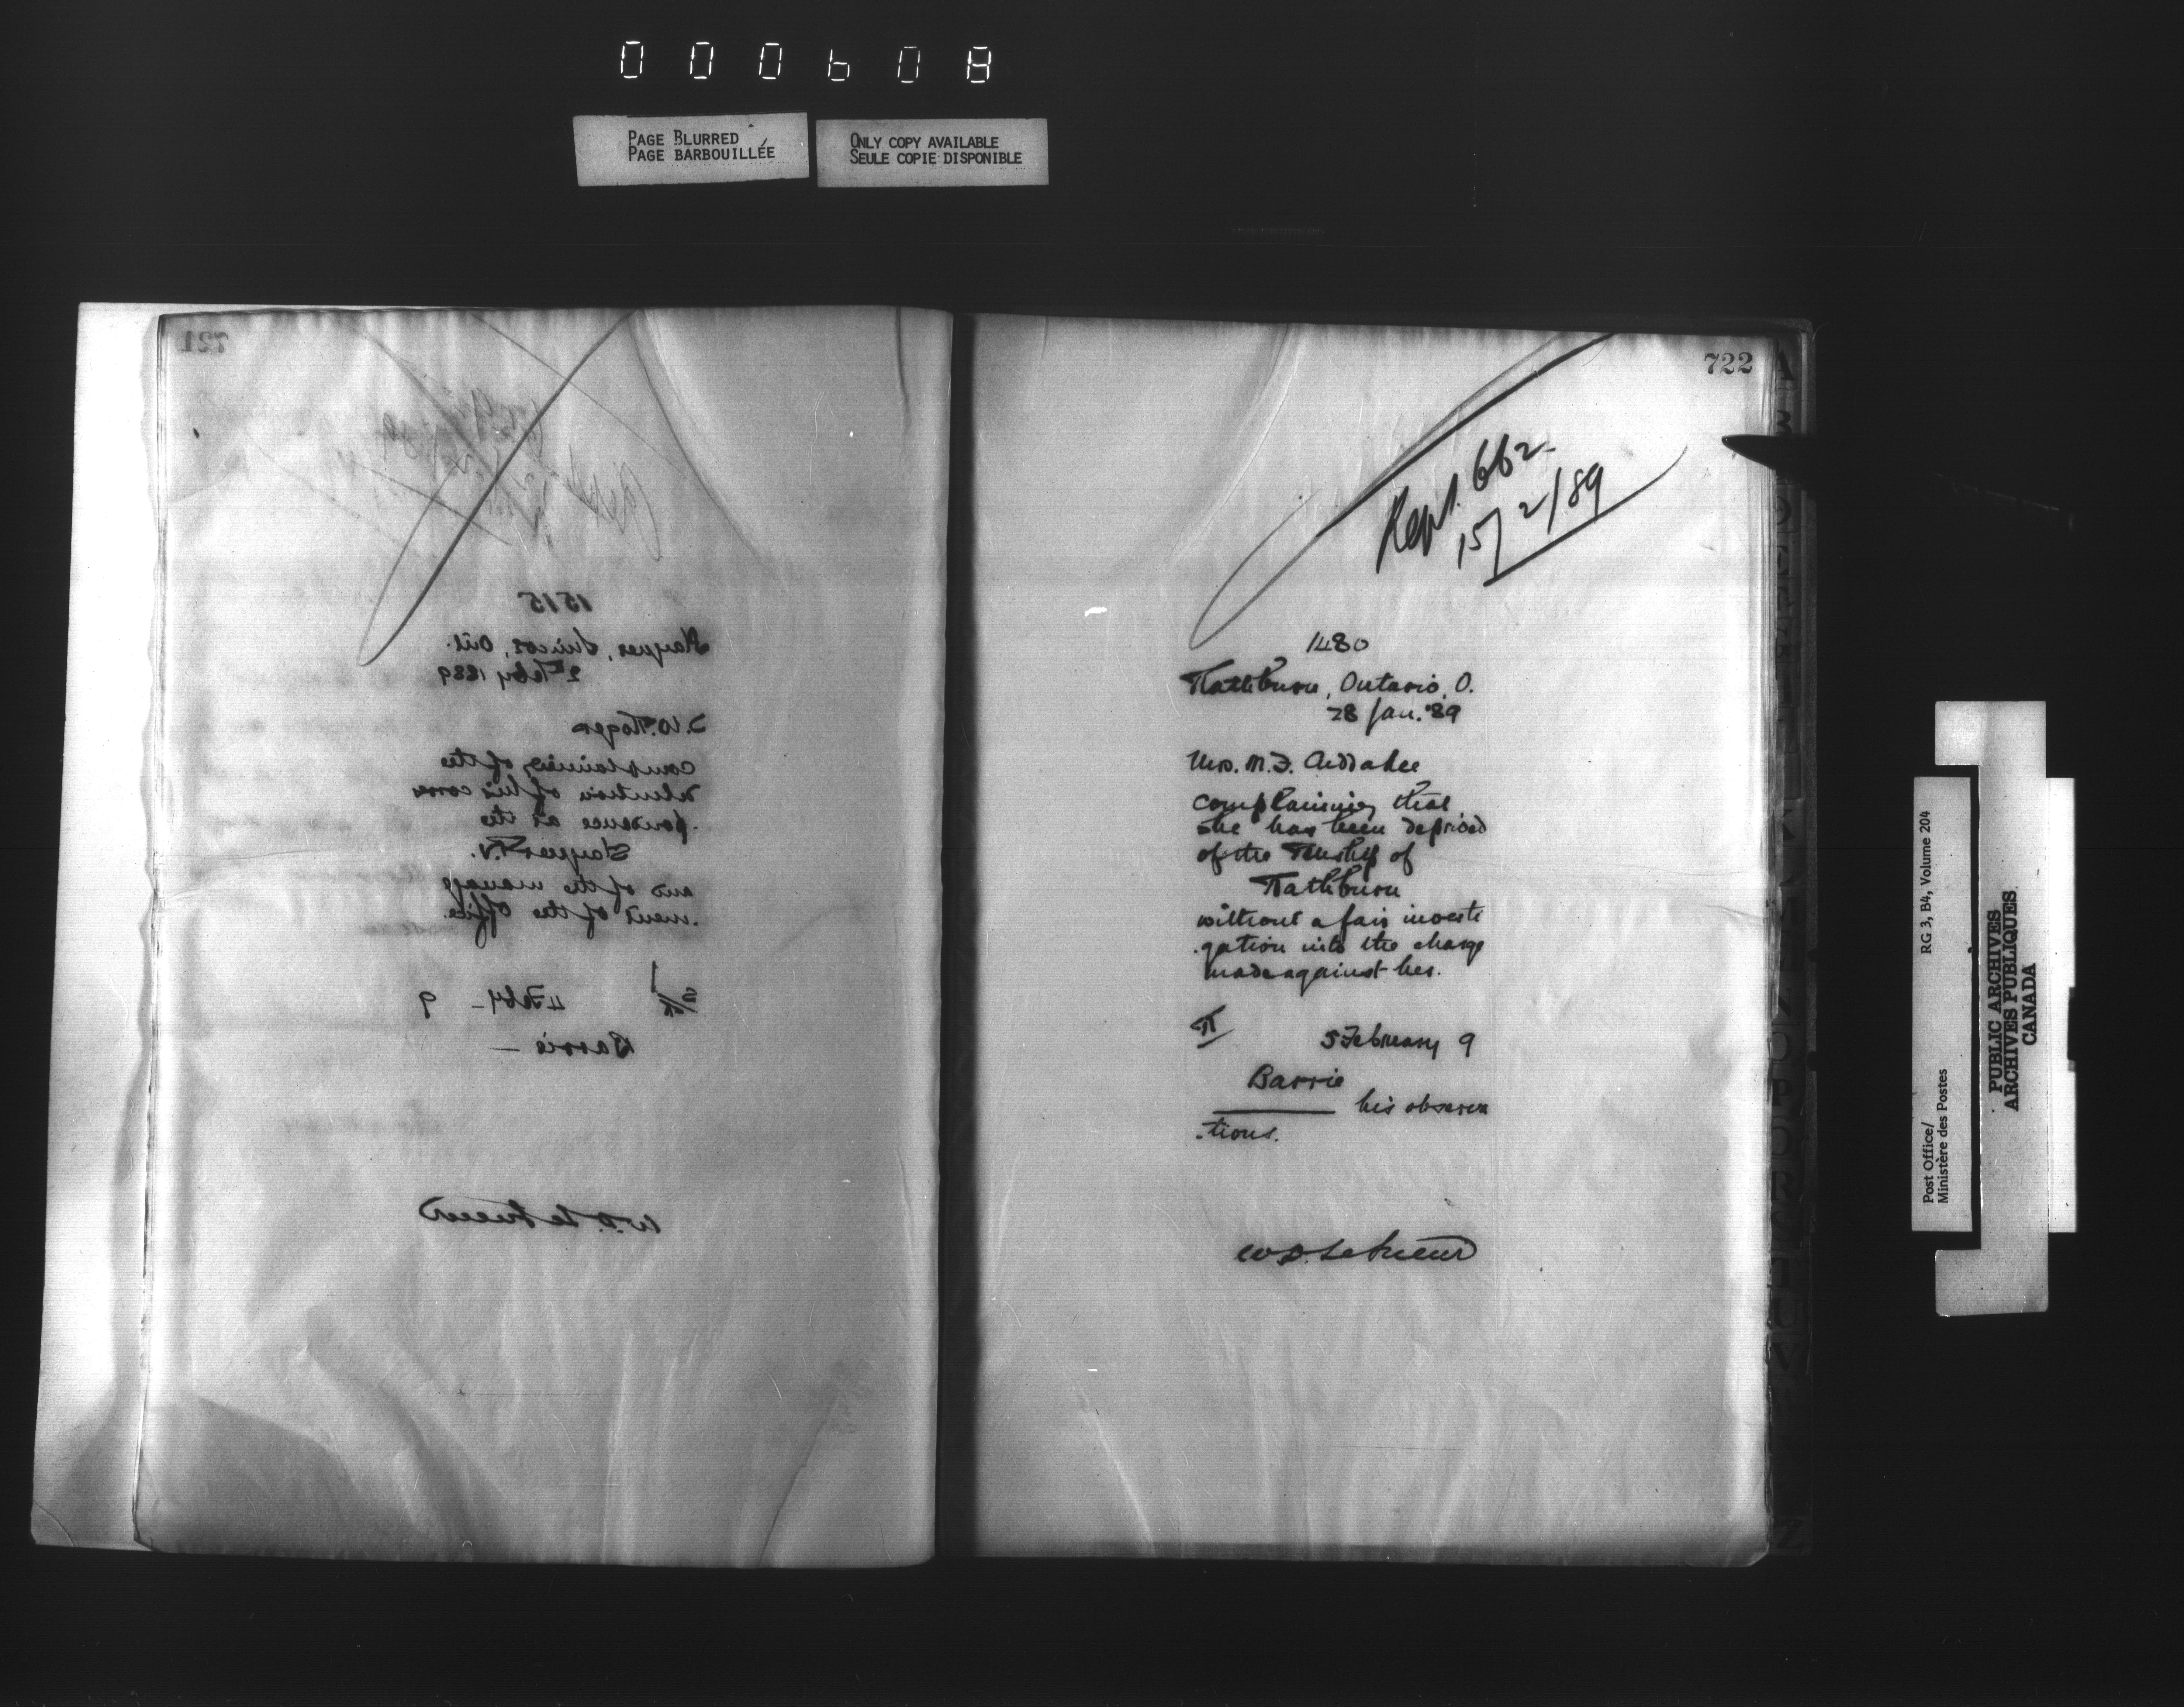 000608
PAGE BLURRED
PAGE BARBOUILLÉE
ONLY COPY AVAILABLE
SEULE COPIE DISPONIBLE
721
1515
Simcoe, Ont.
2 Feby 1889
complaining of the
detention of his corres
pondence at the
and of the manage
ment of the office.
4 Feby - 9
Barrie -
W.D. LeSueur
722
Rept. 662
15/2/89
1480
Rathburn, Ontario, O.
28 Jan. '89
Mrs. M. J.
complaining that
she has been deprived
of the of
Rathburn
without a fair investi
gation into the charge
made against her.
R
5 February 9
Barrie
his observa
tions.
W.D. LeSueur
RG 3, B4, Volume 204
Post Office/
Ministère des Postes
PUBLIC ARCHIVES
ARCHIVES PUBLIQUES
CANADA